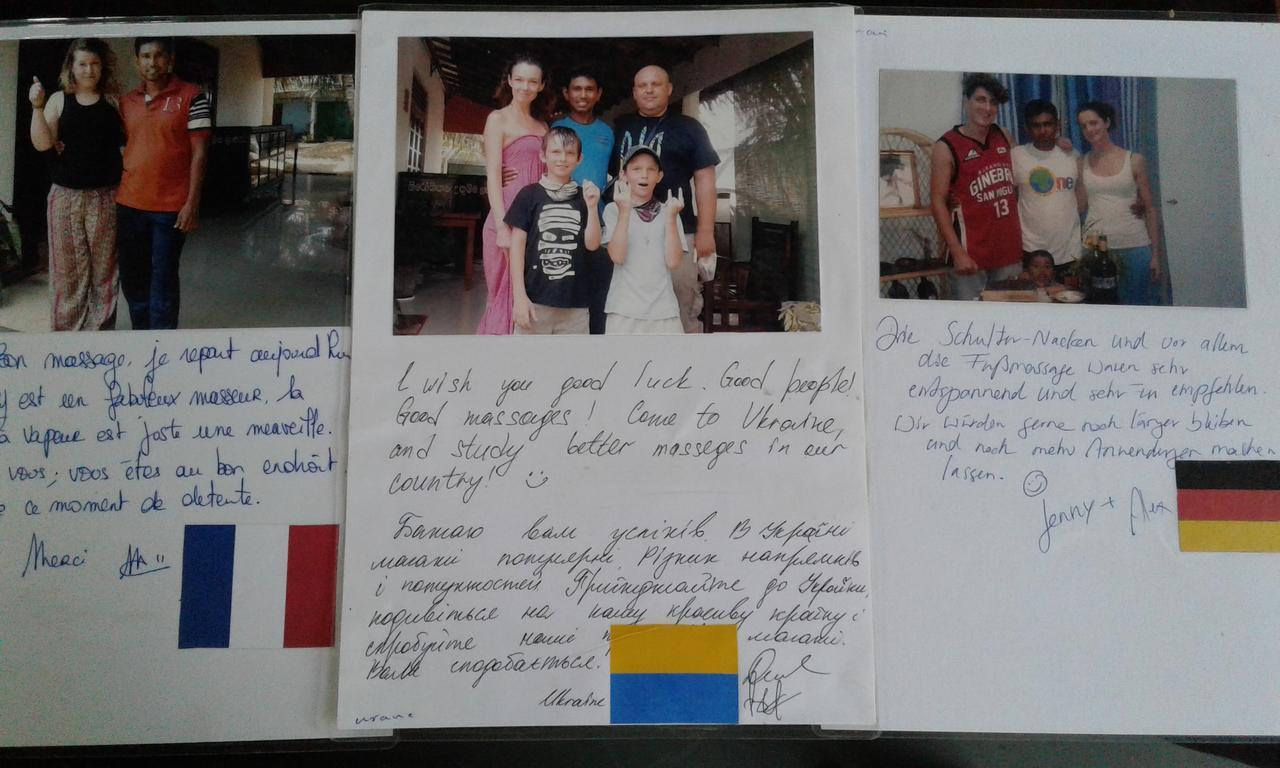 Bon massage, je repart aujourd'hui
est un fabuleux masseur, la
vapeur est juste une merveille.
vous; vous êtes au bon endroit
ce moment de detente.
Merci
I wish you good luck. Good people!
Good massages! Come to Ukraine,
and study better masseges in our
country!
Бажаю вам успіхів. В Україні
масажі популярні. Різних напрямків
і потужностей. Приїжджайте до України,
подивіться на нашу красиву країну і
спробуйте наші масажі.
Вам сподобається.
Ukraine
GINEBRA
SAN MIGUEL
13
Die Schulter-Nacken und vor allem
die Fußmassage waren sehr
entspannend und sehr zu empfehlen.
Wir würden gerne noch länger bleiben
und noch mehr Anwendungen machen
lassen.
Jenny + Alex